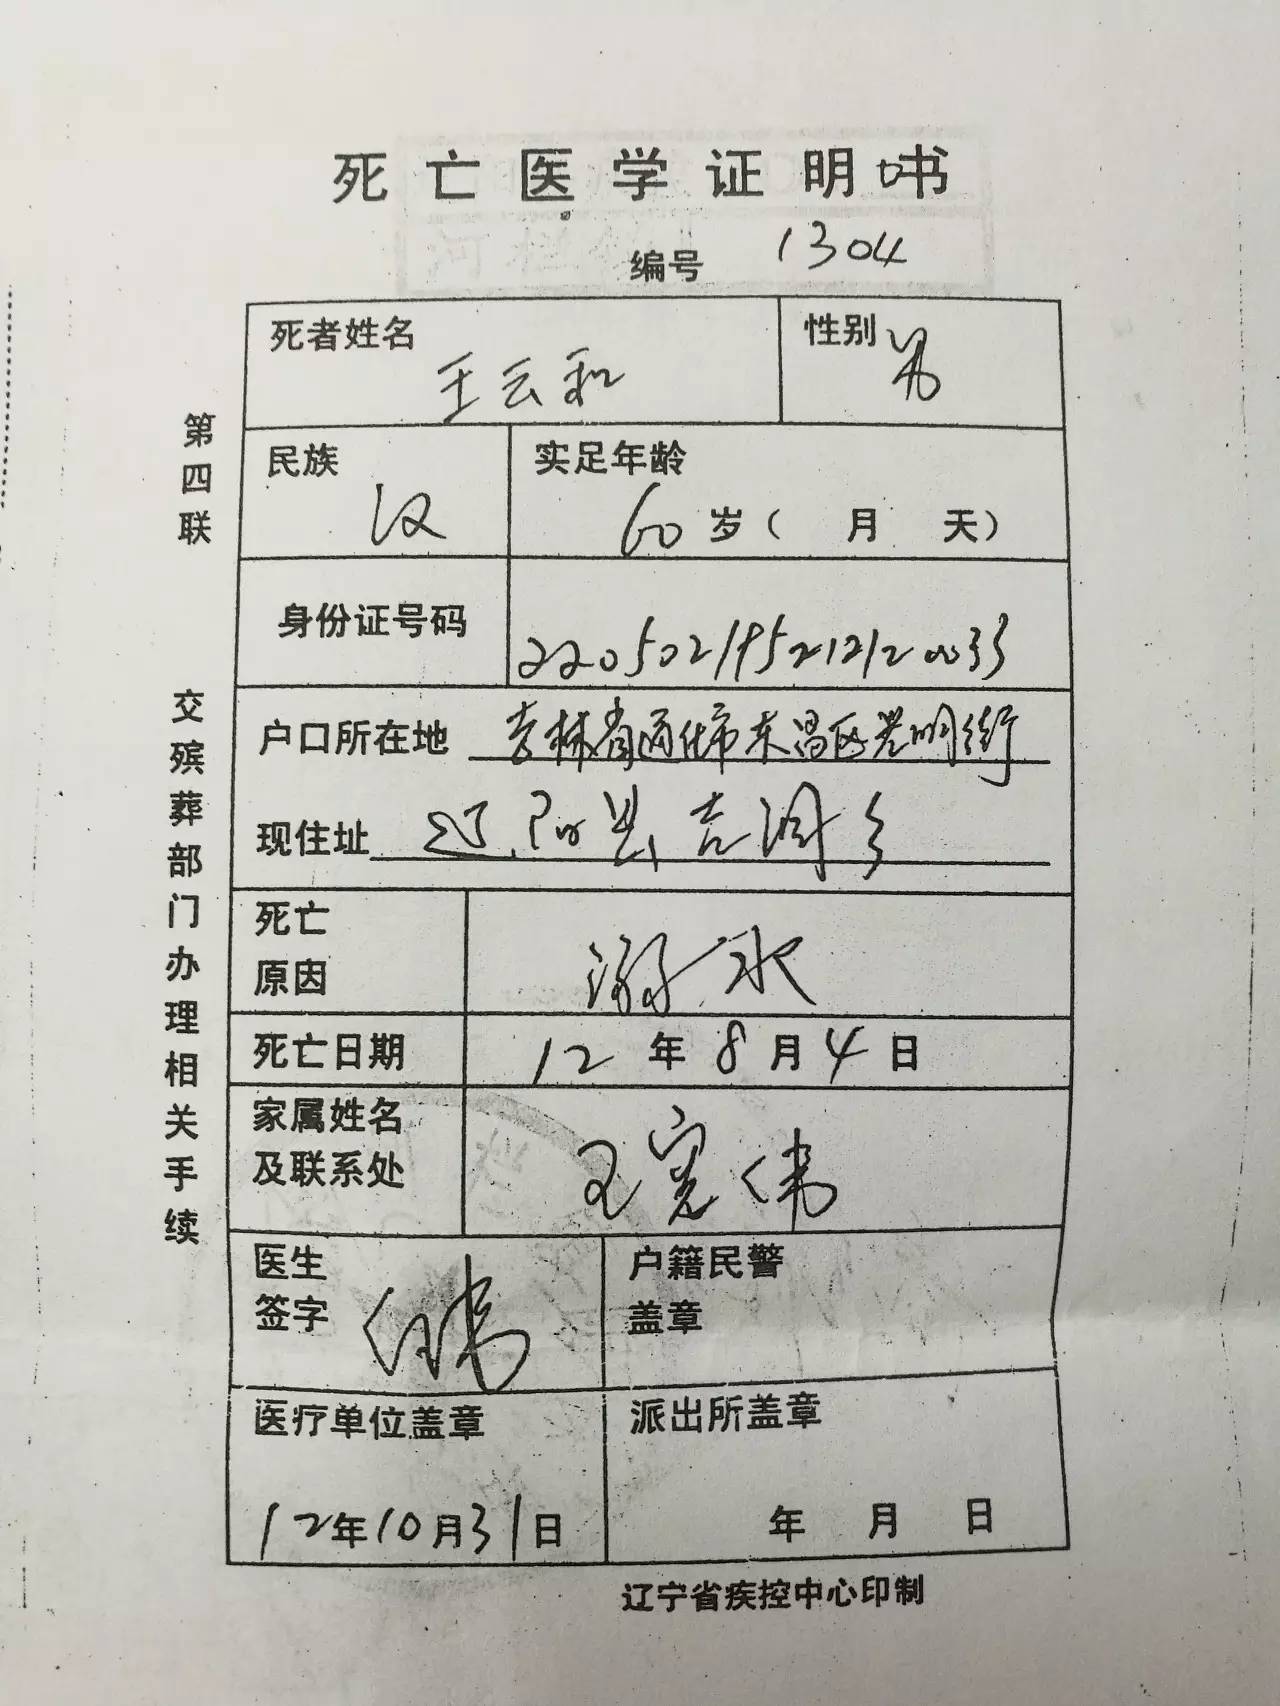 死亡医学证明书
编号 1304
死者姓名 王云和 性别 男
民族 汉 实足年龄 60岁（ 月 天）
身份证号码 220502195212120033
户口所在地 吉林省通化市东昌区光明街
现住址 辽阳县吉洞乡
死亡原因 溺水
死亡日期 12年8月4日
家属姓名及联系处 王宪伟
医生签字
户籍民警盖章
医疗单位盖章 12年10月31日
派出所盖章 年 月 日
辽宁省疾控中心印制
第四联 交殡葬部门办理相关手续